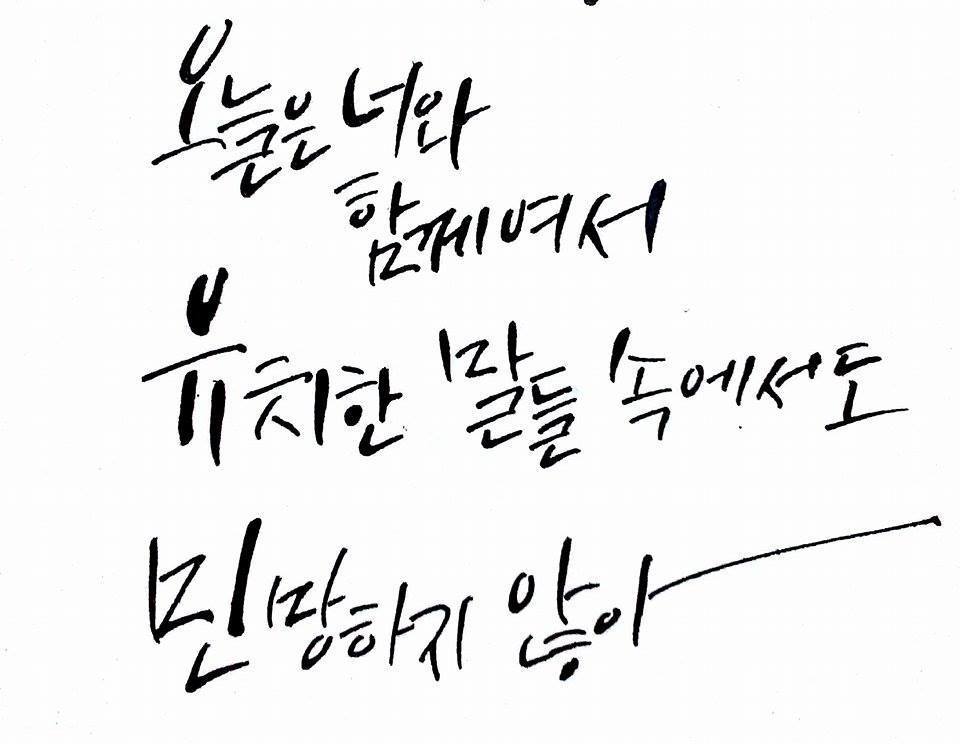 오늘은 너와
함께여서
유치한 말들 속에서도
민망하지 않아